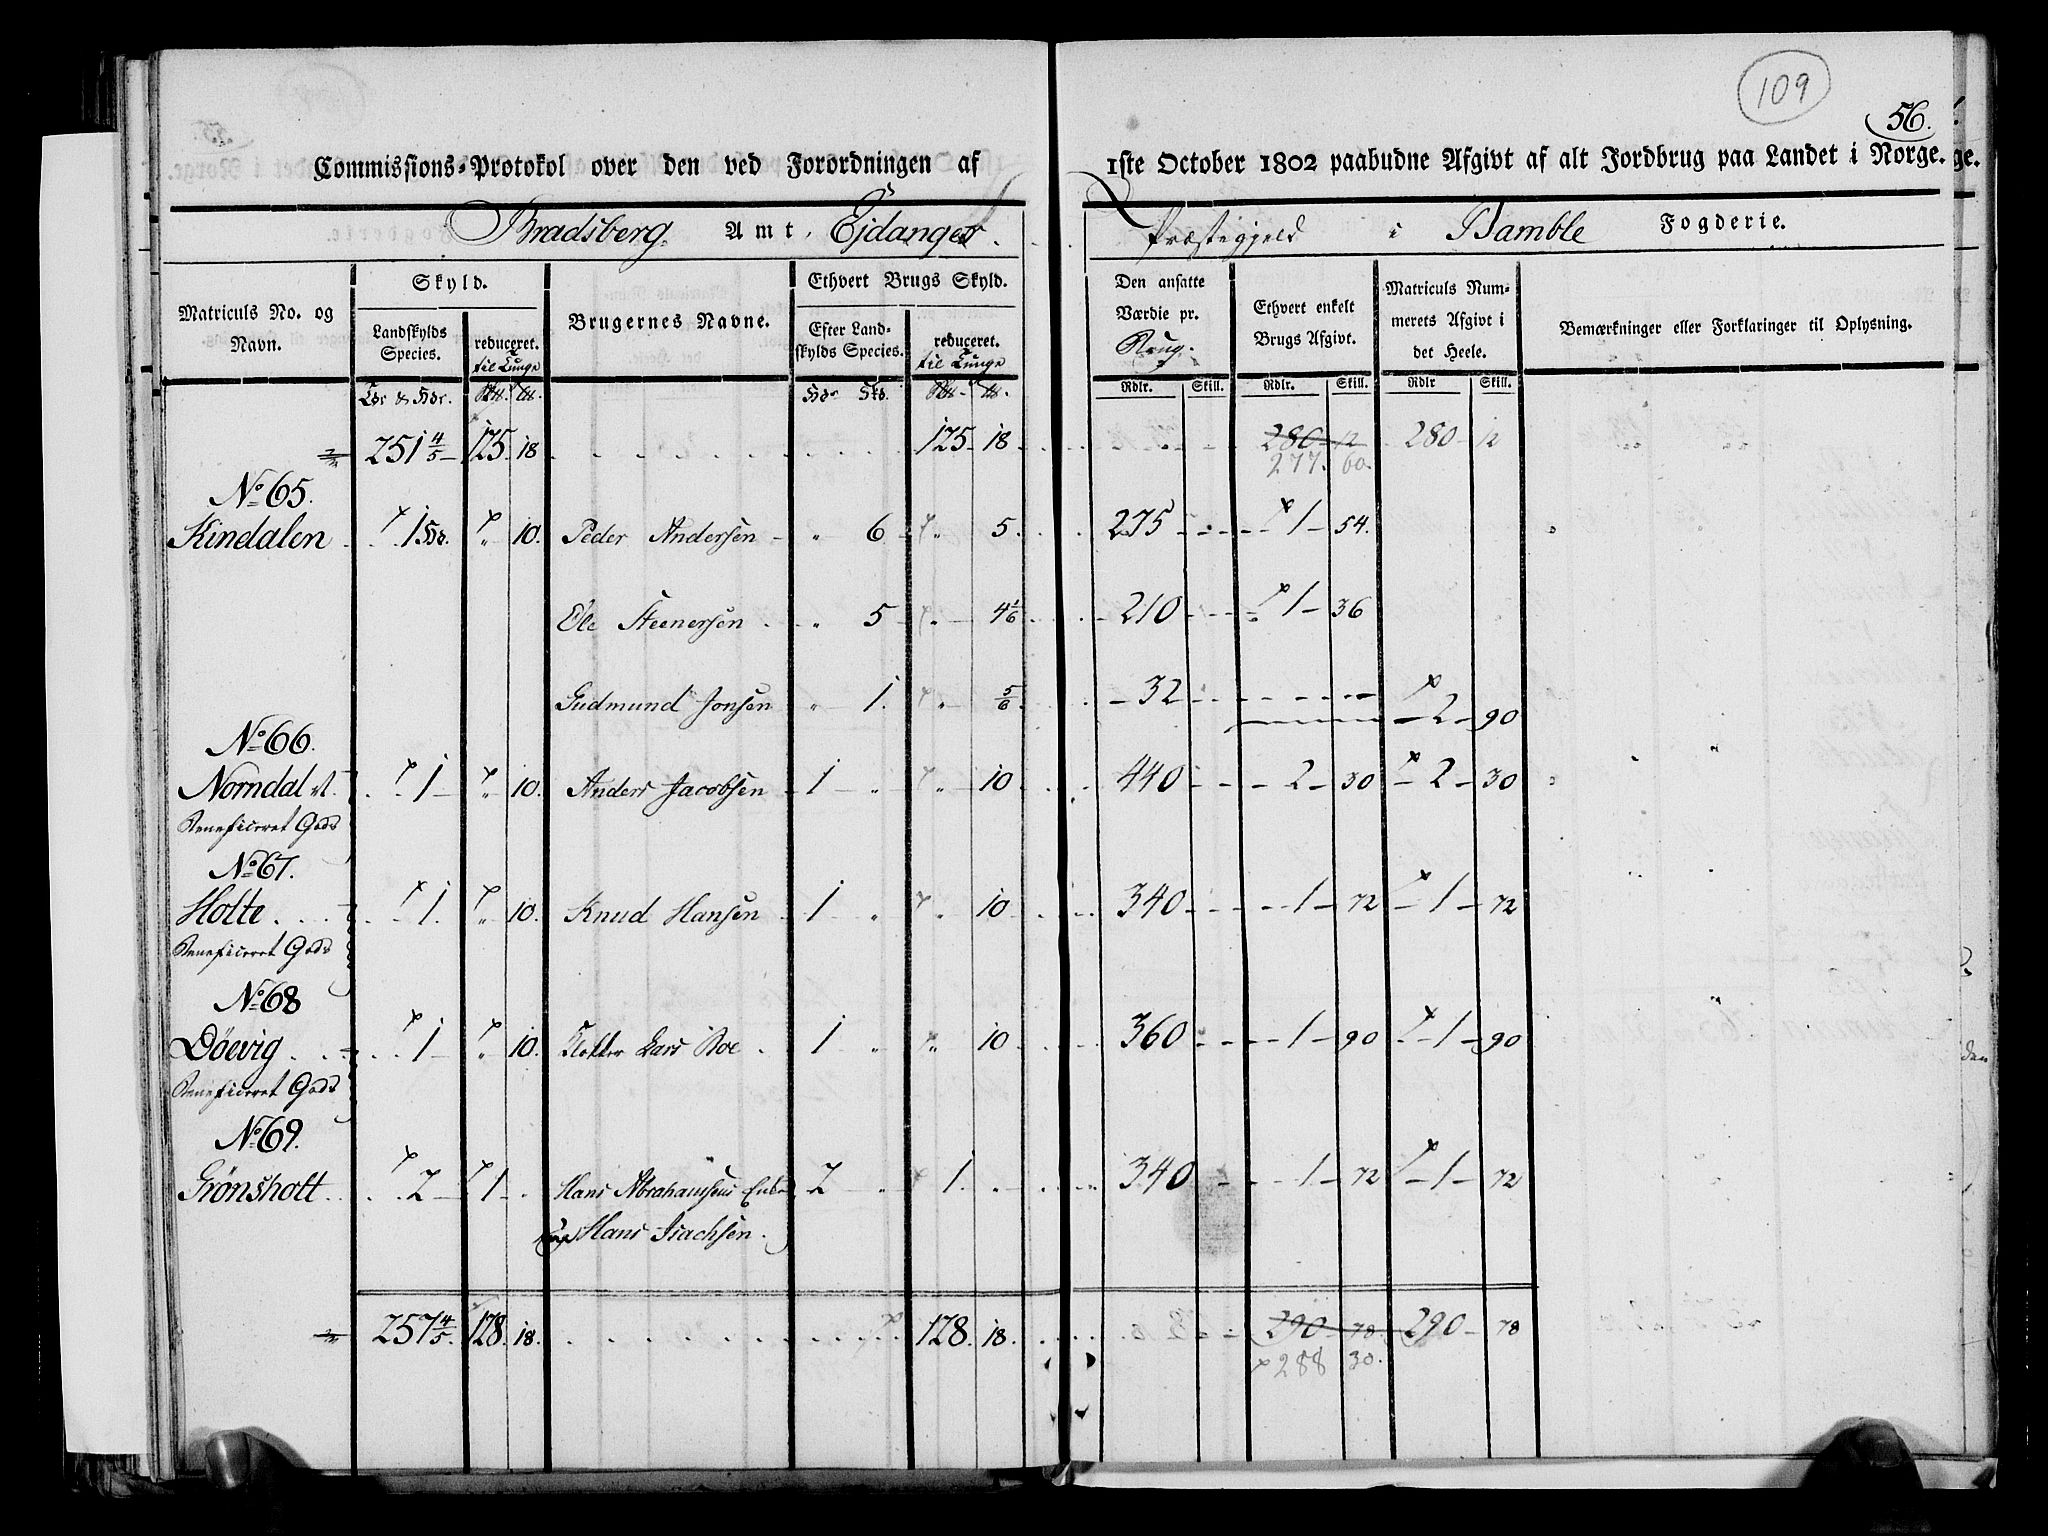 109
56.
Commissions-Protokol over den ved Forordningen af 1ste October 1802 paabudne Afgivt af alt Jordbrug paa Landet i Norge.
Bradsberg Amt, Ejdanger Præstegjeld i Bamble Fogderie.
Matriculs No. og Navn. Skyld. Brugernes Navne. Ethvert Brugs Skyld. Den ansatte Værdie pr. Brug. Ethvert enkelt Brugs Afgivt. Matriculs Nummerets Afgivt i det Heele. Bemærkninger eller Forklaringer til Oplysning.
Landskylds Species. reduceret. til Tunge Efter Landskylds Species. reduceret. til Tunge
Rdlr. Skill. Rdlr. Skill. Rdlr Skill.
251 4/5 125 18 125 18 280 12 280 12
277. 60.
No 65.
Kindalen 1 Hdr. " 10. Peder Andersen " 6 " 5 275 1 54.
Ole Steenersen " 5 " 4 1/6 210 1 36
Gudmund Jonsen " 1. " 5/6 32 2 90
No 66.
Norndal 1 " 10. Anders Jacobsen 1 " " 10 440 2 30 2 30
Beneficeret Gods
No 67.
Holte 1. " 10. Knud Hansen 1 " " 10 340 1 72 1 72
Beneficeret Gods
No 68
Döevig 1 " 10. Lars Boe 1 " " 10 360 1 90 1 90
Beneficeret Gods
No 69.
Grönsholt 2 1 Hans Abrahamsens Enke 2 " 1. " 340 1 72 1 72
Hans Isachsen.
257 4/5 128. 18. 128. 18. 290 78 290 78
288 30.